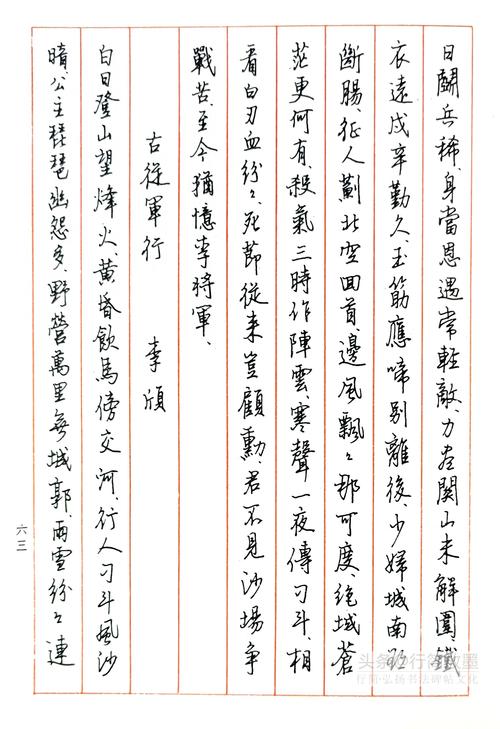 日鬭兵稀、身當恩遇常輕敵、力盡關山未解圍、鐵
衣遠戍辛勤久、玉筯應啼別離後、少婦城南欲
斷腸、征人薊北空回首、邊風飄々那可度、絶域蒼
茫更何有、殺氣三時作陣雲、寒聲一夜傳刁斗、相
看白刃血紛々、死節從来豈顧勳、君不見沙場爭
戰苦、至今猶憶李將軍、
古從軍行 李頎
白日登山望烽火、黄昏飲馬傍交河、行人刁斗風沙
暗、公主琵琶幽怨多、野營萬里無城郭、雨雪紛々連
六三
行简·弘扬书法碑帖文化